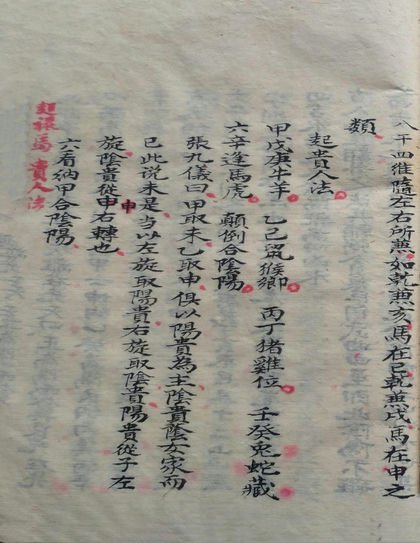 八干四維隨左右所兼如乾兼亥馬在巳乾兼戌馬在申之
類
起貴人法
甲戊庚牛羊 乙己鼠猴鄉 丙丁猪雞位 壬癸兔蛇藏
六辛逢馬虎 顛倒合陰陽
張九儀曰甲取未乙取申俱以陽貴為主陰貴蔭女家而
已此说未是当以左旋取陽貴右旋取陰貴陽貴從子左
旋陰貴從申右轉也
申
六看納甲合陰陽
起祿馬貴人法